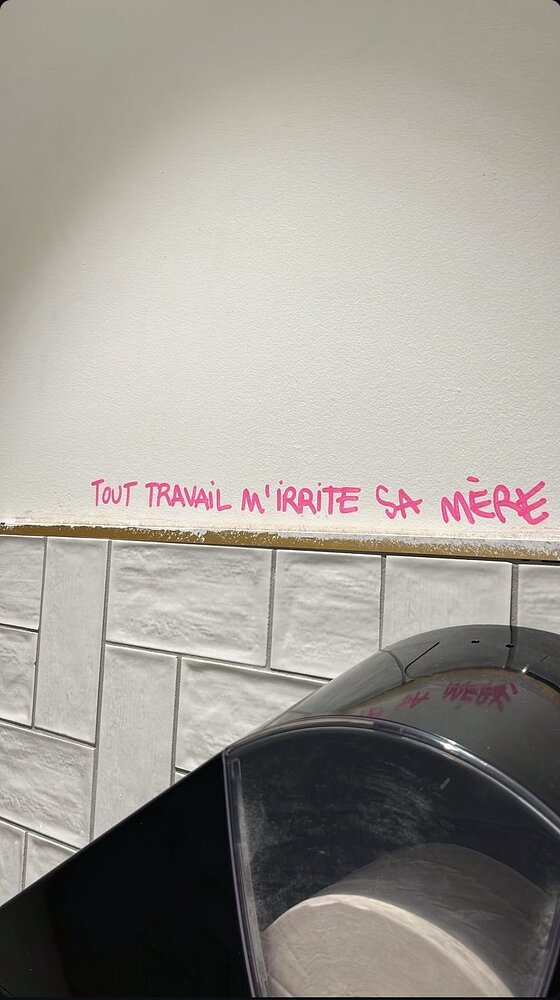 TOUT TRAVAIL M'IRRITE SA MÈRE